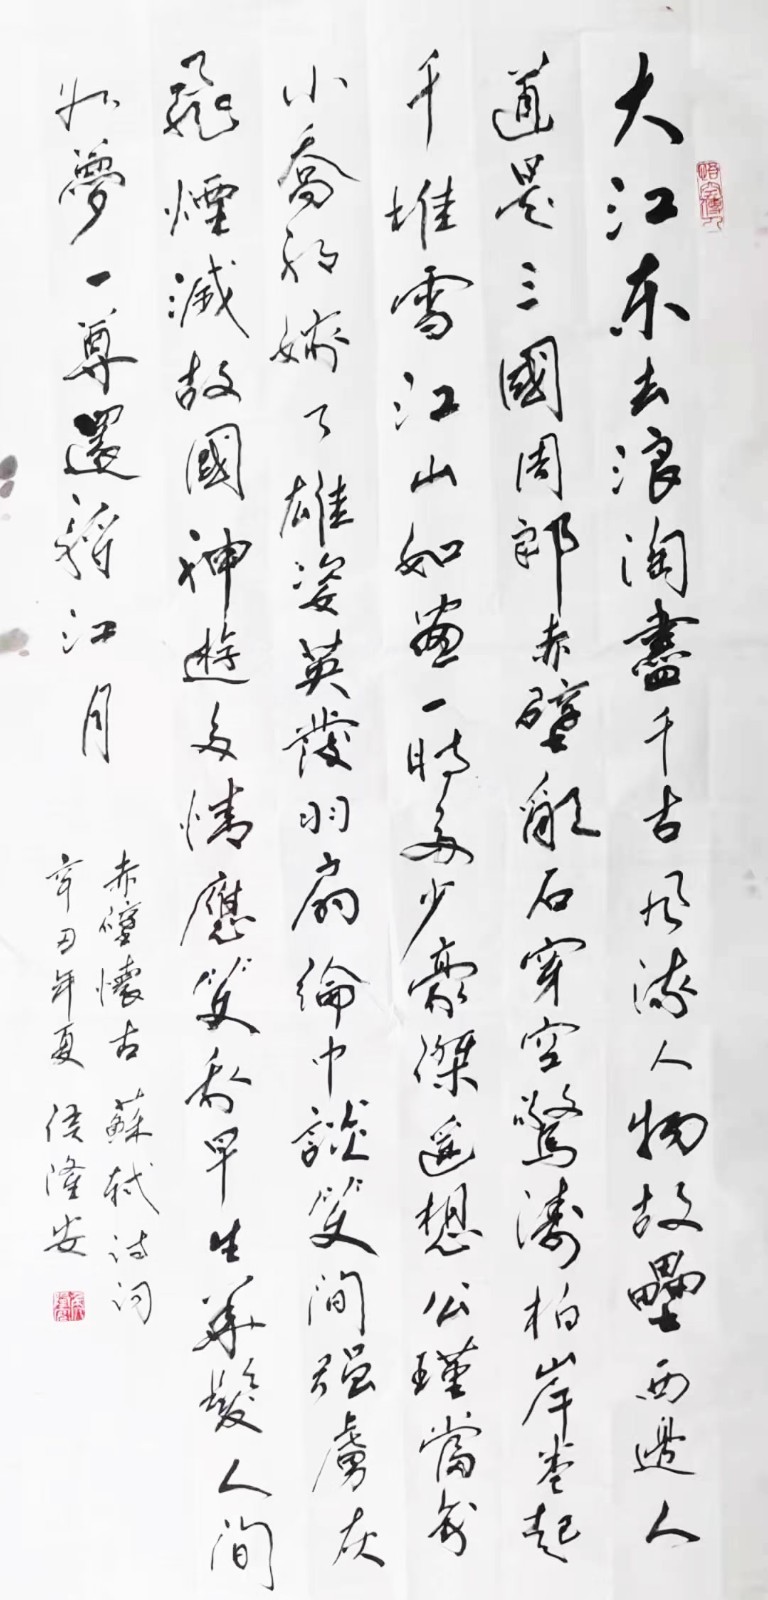 大江东去浪淘盡千古风流人物故壘西邊人
道是三國周郎赤壁亂石穿空驚濤拍岸卷起
千堆雪江山如畫一時多少豪傑遥想公瑾當年
小喬初嫁了雄姿英發羽扇綸巾談笑间强虜灰
飛煙滅故國神遊多情應笑我早生華髮人间
如夢一尊還酹江月
赤壁懷古 蘇軾诗词
辛丑年夏 侯隆安